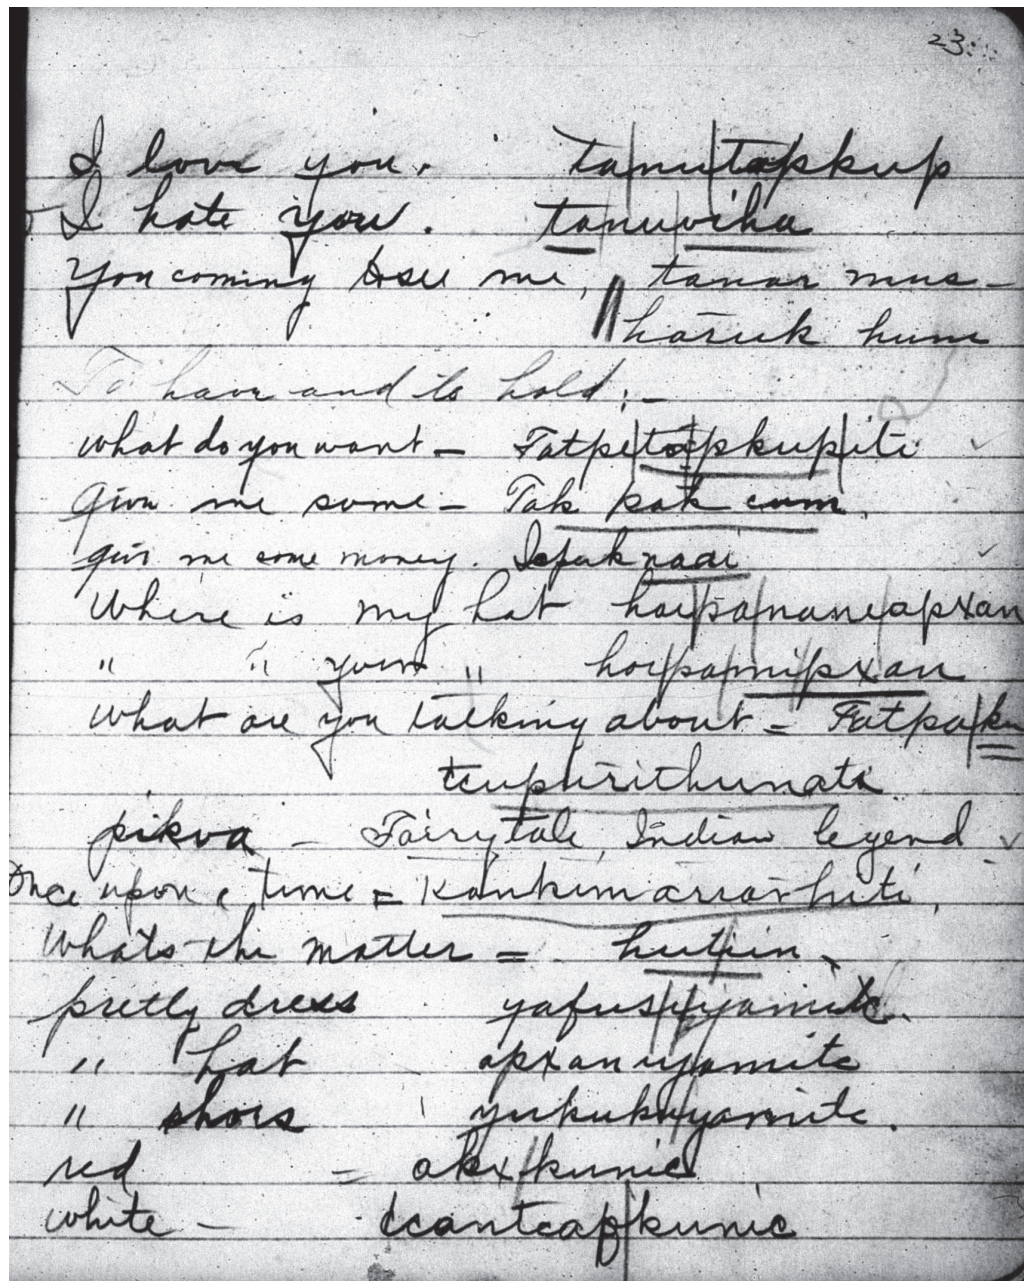 23
I love you. tanu|tapkup
I hate you. tanuviha
You coming to see me, tanar mus-
haruk hum
To have and to hold:-
what do you want - Fatpe|tapkup|iti
Give me some - Tak pak cum.
give me some money. Icpuk naai
Where is my hat hoi|pa|nani|apxan
" " your " hoi|pa|mi|pxan
What are you talking about = Fatpa|ku
tcuphirithunati
pikva - Fairytale, Indian legend
Once upon a time = Kunkimarrarhiti,
Whats the matter = hutfin
pretty dress yafus|yamitc.
" hat apxan|yamitc
" shoes yukuku|yamitc.
red = akx|kunic
white - tcantcaf|kunic